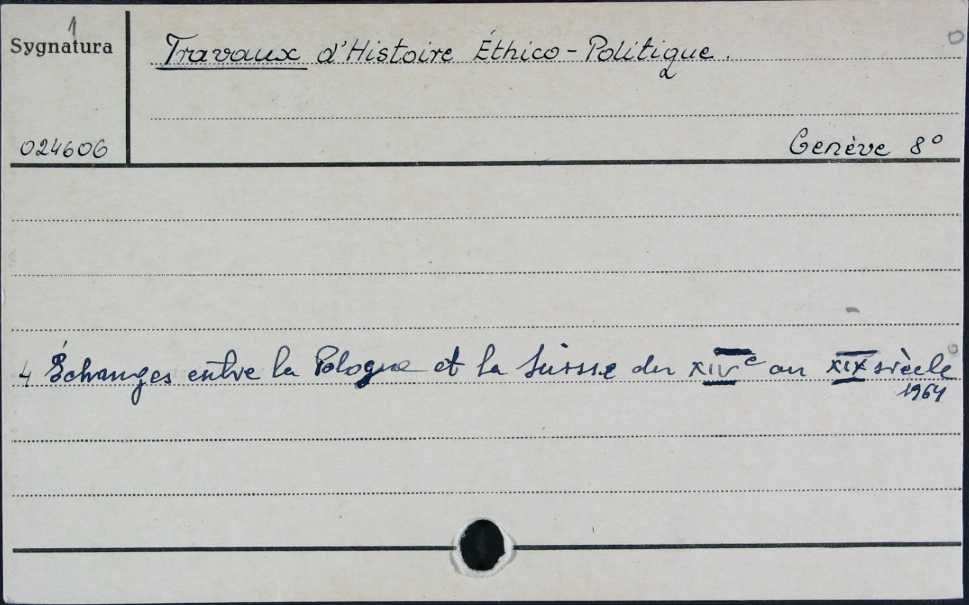 1
Sygnatura
Travaux d'Histoire Éthico-Politique.
024606
Genève 8°
4 Échanges entre la Pologne et la Suisse du XIVe au XIX siècle
1964